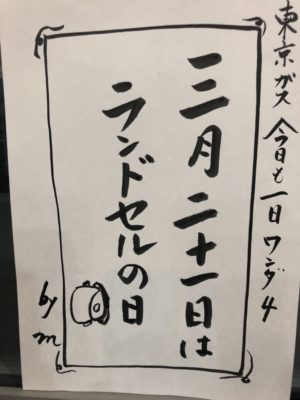 東京ガス 今日も一日ワンダ4
三月二十一日は
ランドセルの日
by m